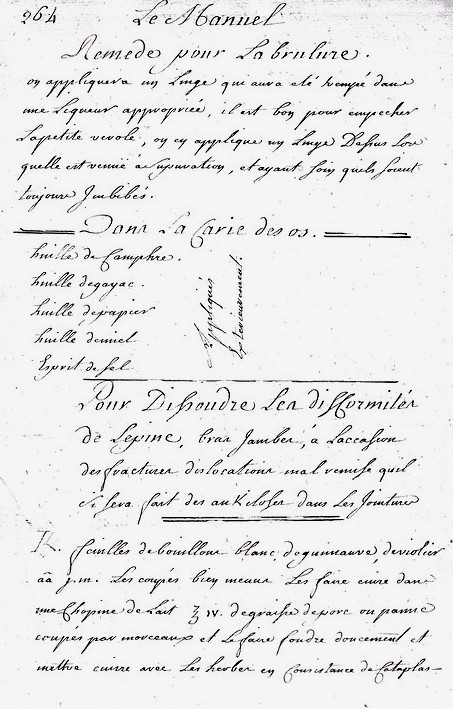 264 Le Manuel
Remede pour La brulure.
on appliquera un Linge qui aura eté trempé dans
une Liqueur appropriée, il est bon pour empecher
Lapetite verole, on en applique un Linge Dessus Lors
quelle est venüe à supuration, et ayant soin quels soient
toujours Jmbibés.
Dans La Carie des os.
huille de Camphre.
huille degayac.
huille depapier
huille demiel
Esprit de sel
Appliqués
Exterieurement.
Pour Dissoudre Les difformités
de Lepine, bras Jambes, à Laccasion
desfractures dislocations mal remise quil
si sera fait des ankiloses dans Les Jointures
R. feuilles debouillons blanc, deguimauve, deviolier
āā j.m. Les coupés bien menue Les faire cuire dans
une Chopine de Lait ʒ iv. degraisse deporc ou panne
coupés par morceaux et Lefaire fondre doucement et
mettre cuirre avec Les herbes en Consistance de Cataplas-